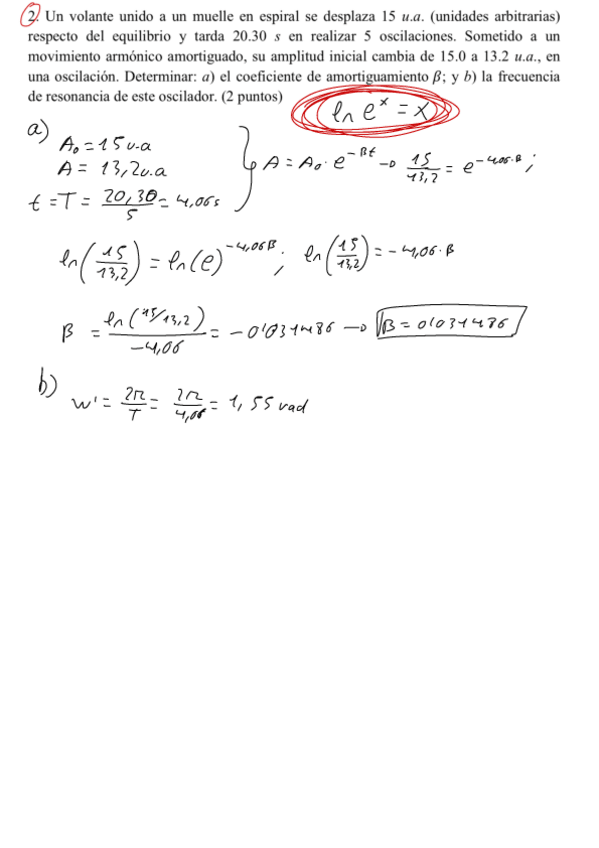 2. Un volante unido a un muelle en espiral se desplaza 15 u.a. (unidades arbitrarias)
respecto del equilibrio y tarda 20.30 s en realizar 5 oscilaciones. Sometido a un
movimiento armónico amortiguado, su amplitud inicial cambia de 15.0 a 13.2 u.a., en
una oscilación. Determinar: a) el coeficiente de amortiguamiento β; y b) la frecuencia
de resonancia de este oscilador. (2 puntos)
ln e^x = x
a)
A₀ = 15 u.a
A = 13,2 u.a
t = T = 20,30/5 = 4,06s
A = A₀ · e^-βt → 15/13,2 = e^-4,06·β ;
ln(15/13,2) = ln(e)^-4,06β ; ln(15/13,2) = -4,06·β
β = ln(15/13,2)/-4,06 = -0'031486 → β = 0'031486
b)
w' = 2π/T = 2π/4,06 = 1,55 rad